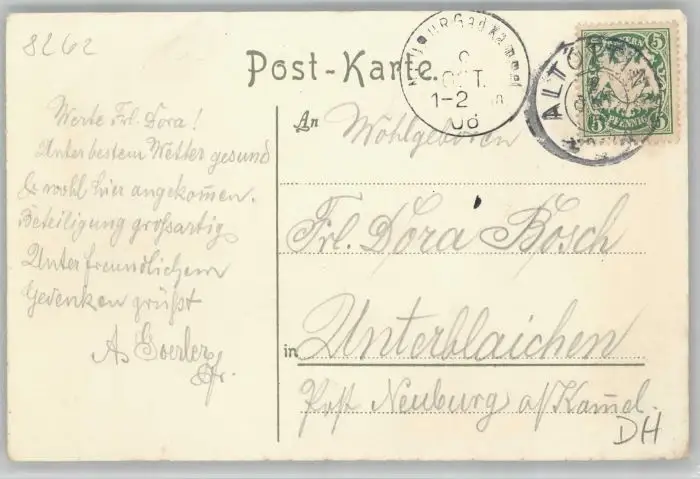 8262
Post-Karte.
OCT.
1-2
06
ALTÖTT
BAYERN
5 5
5 PFENNIG 5
Werte Frl. Dora!
Unter bestem Wetter gesund
& wohl hier angekommen.
Beteiligung großartig
Unter freundlichem
Gedenken grüßt
A. Goerler
An Wohlgeboren
Frl. Dora Bosch
in Unterblaichen
Post Neuburg a/Kamel.
DH